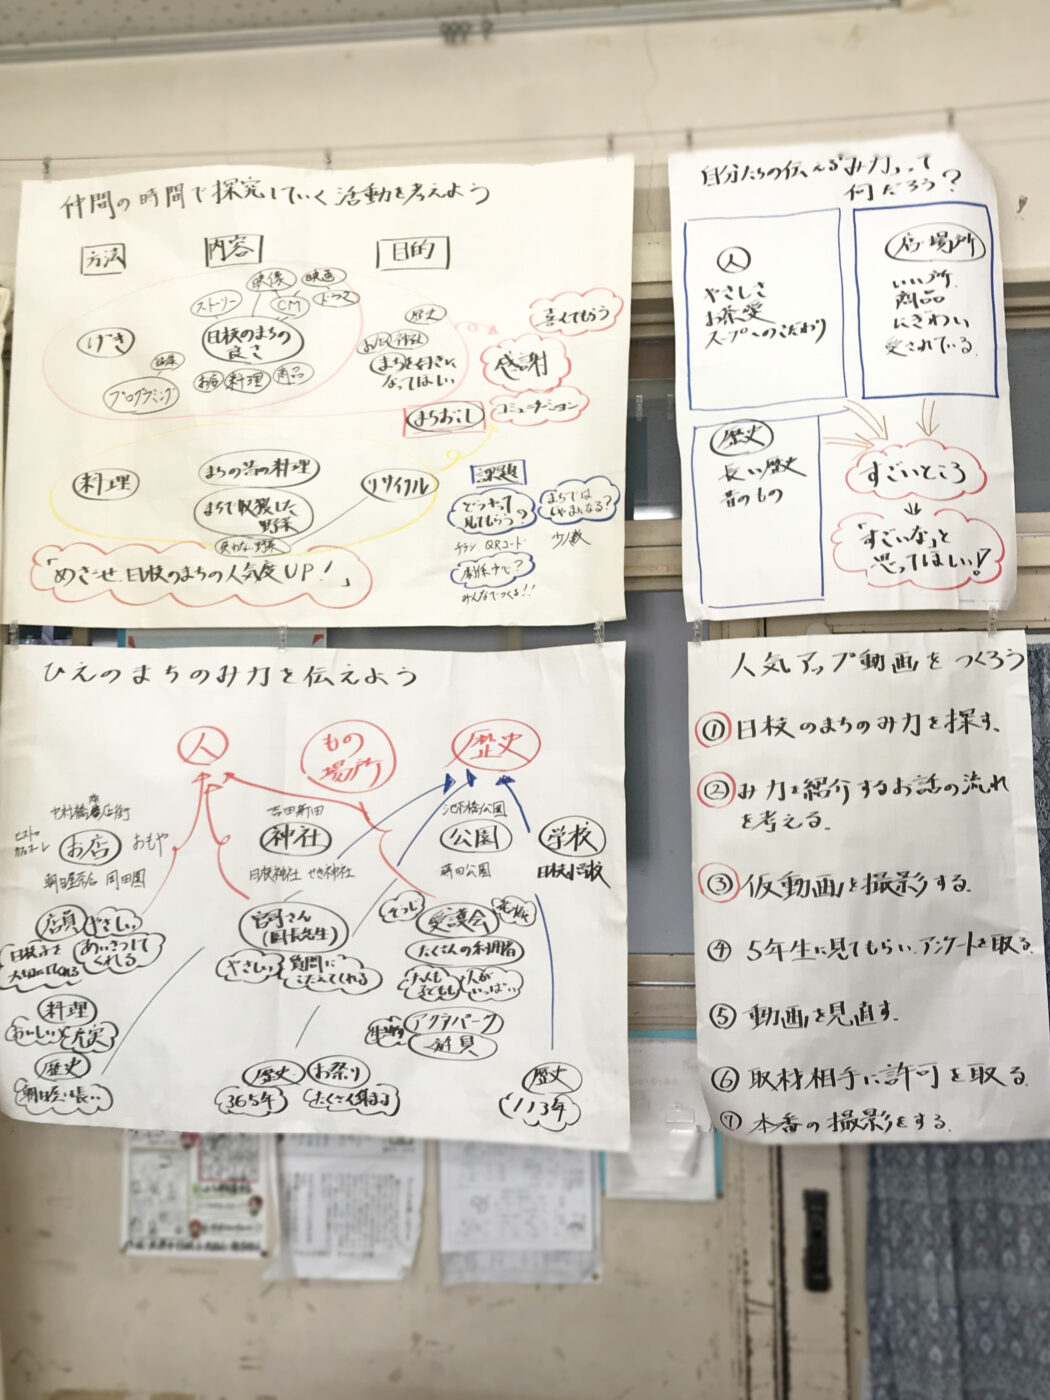 仲間の時間で探究していく活動を考えよう
方法
内容
目的
映像
映画
ストーリー
CM
ドラマ
げき
日枝のまちの
良さ
プログラミング
お店
料理
商品
歴史
神社
まちを好きに
なってほしい
喜んでもらう
感謝
コミュニケーション
まちおこし
料理
まちの昔の料理
まちで収穫した
野菜
リサイクル
課題
どうやって
見てもらう?
チラシ QRコード
まちでは
じゃまになる?
少人数
みんなでつくる!!
「めざせ、日枝のまちの人気度UP!」
自分たちの伝える「み力」って
何だろう?
人
やさしさ
お茶愛
スープへのこだわり
店・場所
いい所
商品
にぎわい
愛されている
歴史
長い歴史
昔のもの
すごいところ
「すごいな」と
思ってほしい!
ひえのまちのみ力を伝えよう
人
もの
場所
歴史
お店
おもや
吉田新田
神社
日枝神社
公園
蒔田公園
学校
日枝小学校
店員
やさしい
あいさつして
くれる
料理
おいしい
充実
歴史
宮司さん
(園長先生)
やさしい
質問に
こたえてくれる
歴史
365年
お祭り
たくさん集まる
愛護会
たくさんの利用者
大人も
子どもも
人が
いっぱい
アクアパーク
歴史
113年
人気アップ動画をつくろう
① 日枝のまちのみ力を探す。
② み力を紹介するお話の流れ
を考える。
③ 仮動画を撮影する。
④ 5年生に見てもらい、アンケートを取る。
⑤ 動画を見直す。
⑥ 取材相手に許可を取る。
⑦ 本番の撮影をする。